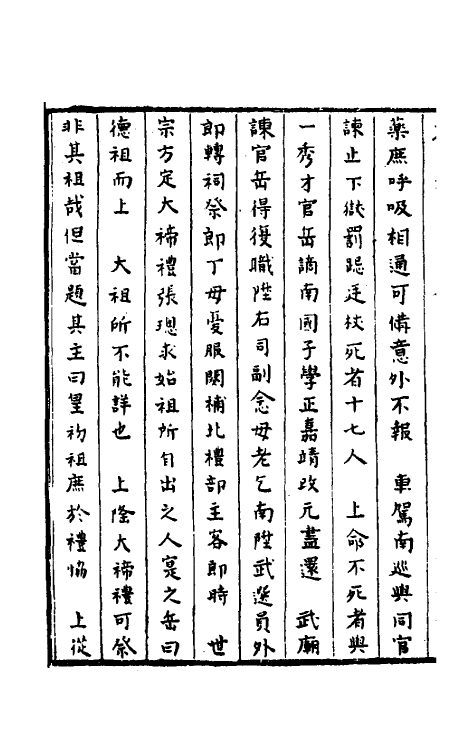 藥庶呼吸相通可備意外不報　車駕南巡與同官
諫止下獄罰跽廷杖死者十七人　上命不死者與
一秀才官岳謫南國子學正嘉靖改元盡還　武廟
諫官岳得復職陞右司副念母老乞南陞武選員外
郎轉祠祭郎丁母憂服闋補北禮部主客郎時　世
宗方定大禘禮張璁求始祖所自出之人寔之岳曰
德祖而上　大祖所不能詳也　上隆大禘禮可祭
非其祖哉但當題其主曰皇初祖庶於禮恊　上從